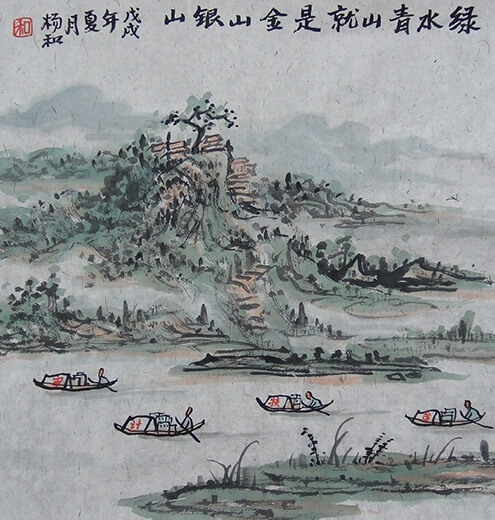 绿水青山就是金山银山
戊戌年夏月
杨和
和
计